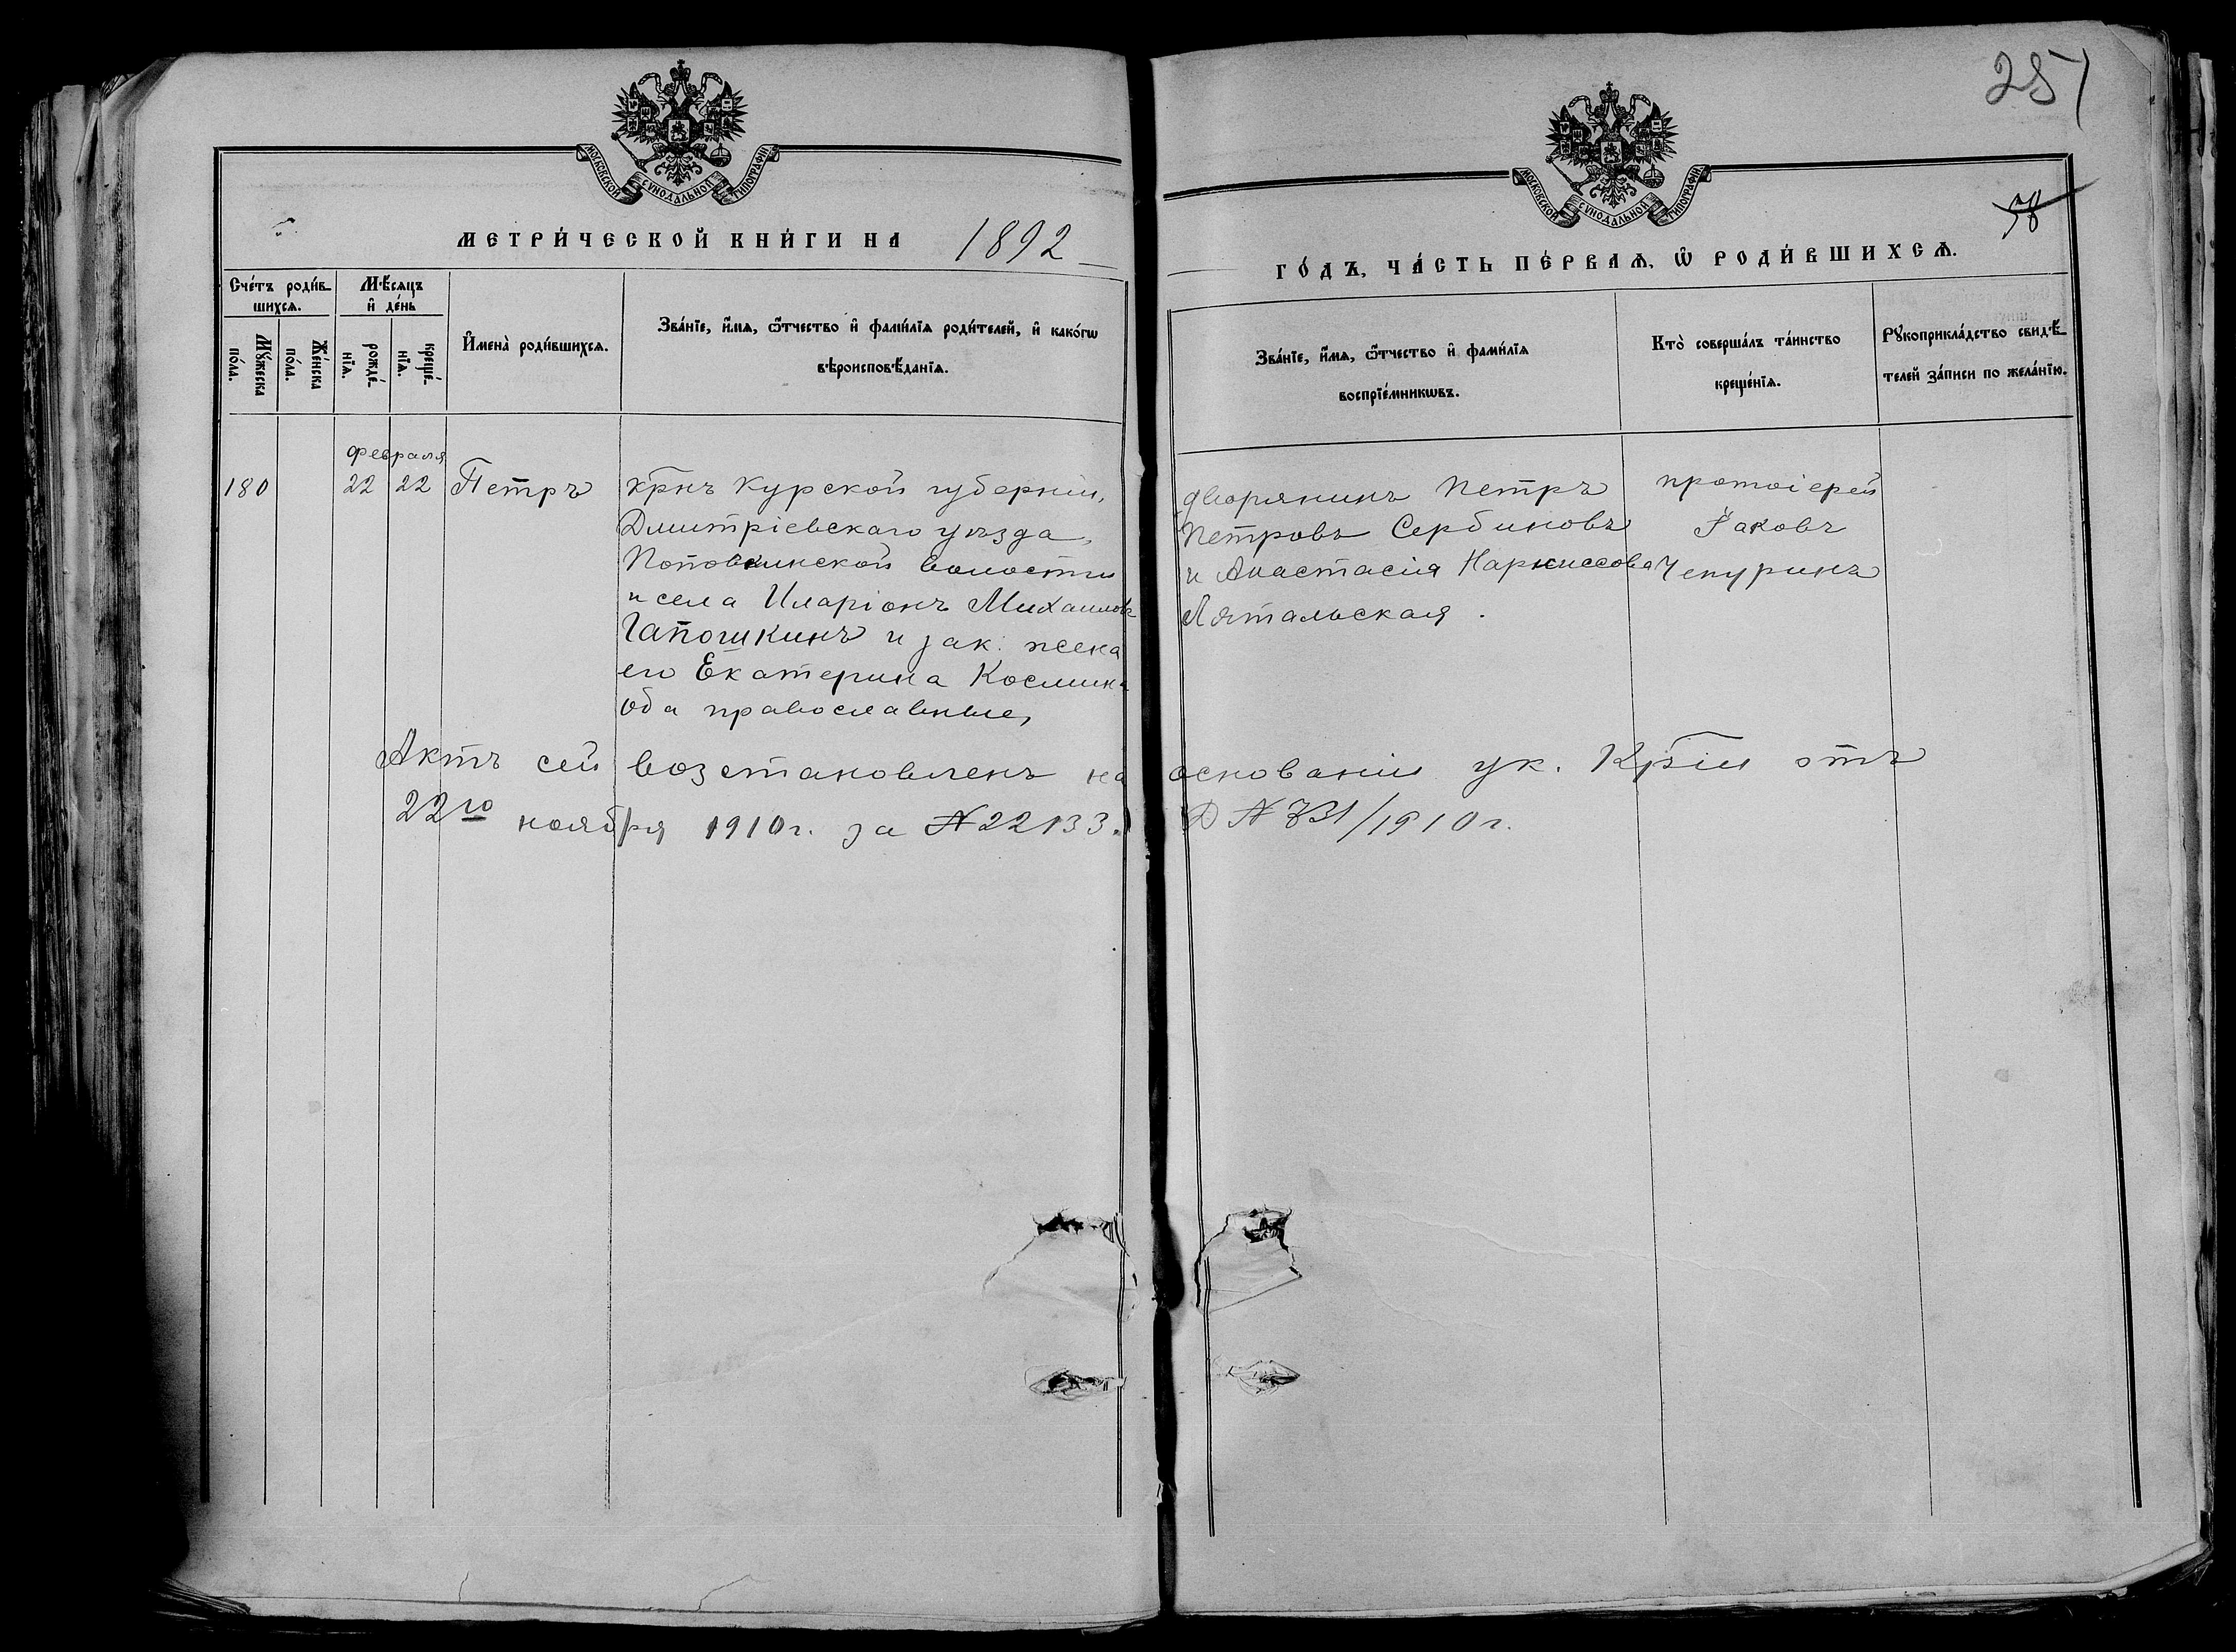 257
МОСКОВСКОЙ СУНОДАЛЬНОЙ ТИПОГРАФІИ
МОСКОВСКОЙ СУНОДАЛЬНОЙ ТИПОГРАФІИ
58
МЕТРИ́ЧЕСКОЙ КНИ́ГИ НА 1892
ГО́ДЪ, ЧА́СТЬ ПЕ́РВАѦ, Ѡ҆ РОДИ́ВШИХСѦ.
Сче́тъ роди́в-
шихсѧ.
Мꙋ́жеска
по́ла.
Же́нска
по́ла.
Мѣ́сяцъ
и҆ де́нь
рожде́-
нїѧ.
креще́-
нїѧ.
И҆мена̀ роди́вшихсѧ.
Зва́нїе, и҆́мѧ, ѻ҆́тчество и҆ фами́лїѧ роди́телей, и҆ како́гѡ
вѣроисповѣ́данїѧ.
Зва́нїе, и҆́мѧ, ѻ҆́тчество и҆ фами́лїѧ
воспрїе́мникѡвъ.
Кто̀ соверша́лъ та́инство
креще́нїѧ.
Рꙋкоприкла́дство свидѣ́-
телей за́писи по жела́нїю.
февраля
180 22 22 Петръ
крнъ Курской губерніи,
Дмитріевскаго уѣзда,
волости
и села Иларіонъ Михаиловъ
Гапошкинъ и зак. жена
его Екатерина Космина
оба православные,
дворянинъ Петръ
Петровъ Сербиновъ
и Анастасія Наркиссова
Лятальская.
протоіерей
Іаковъ
Чепуринъ
Актъ сей возстановленъ на основаніи ук. Крїи отъ
22го ноября 1910 г. за № 22133. Д № /1910 г.